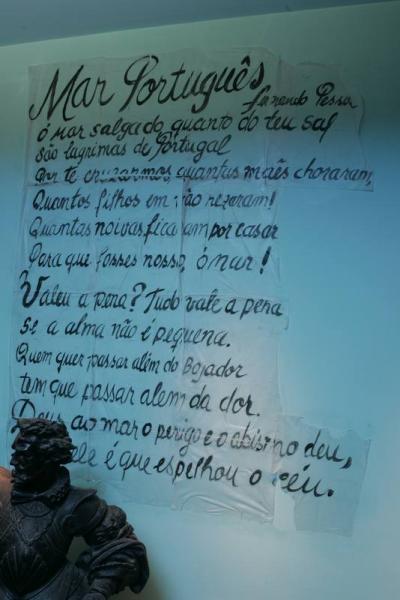 Mar Português
Fernando Pessoa
Ó mar salgado, quanto do teu sal
são lagrimas de Portugal
por te cruzarmos, quantas mães choraram,
Quantos filhos em vão rezaram!
Quantas noivas ficaram por casar
Para que fosses nosso, ó mar!
Valeu a pena? Tudo vale a pena
se a alma não é pequena.
Quem quer passar além do Bojador
tem que passar alem da dor.
Deus ao mar o perigo e o abismo deu,
ele é que espelhou o céu.